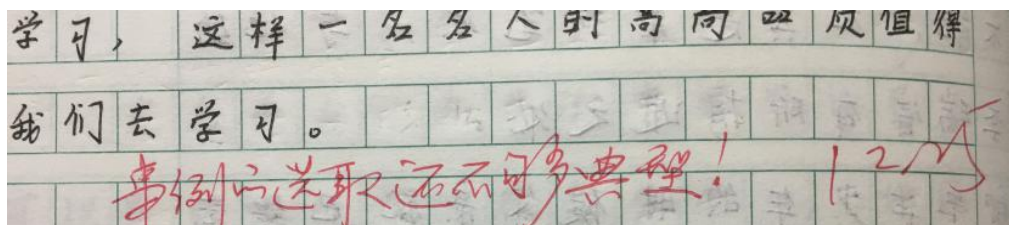 学习，这样一名名人的高尚品质值得
我们去学习。
事例的选取还不够典型！ 12月5